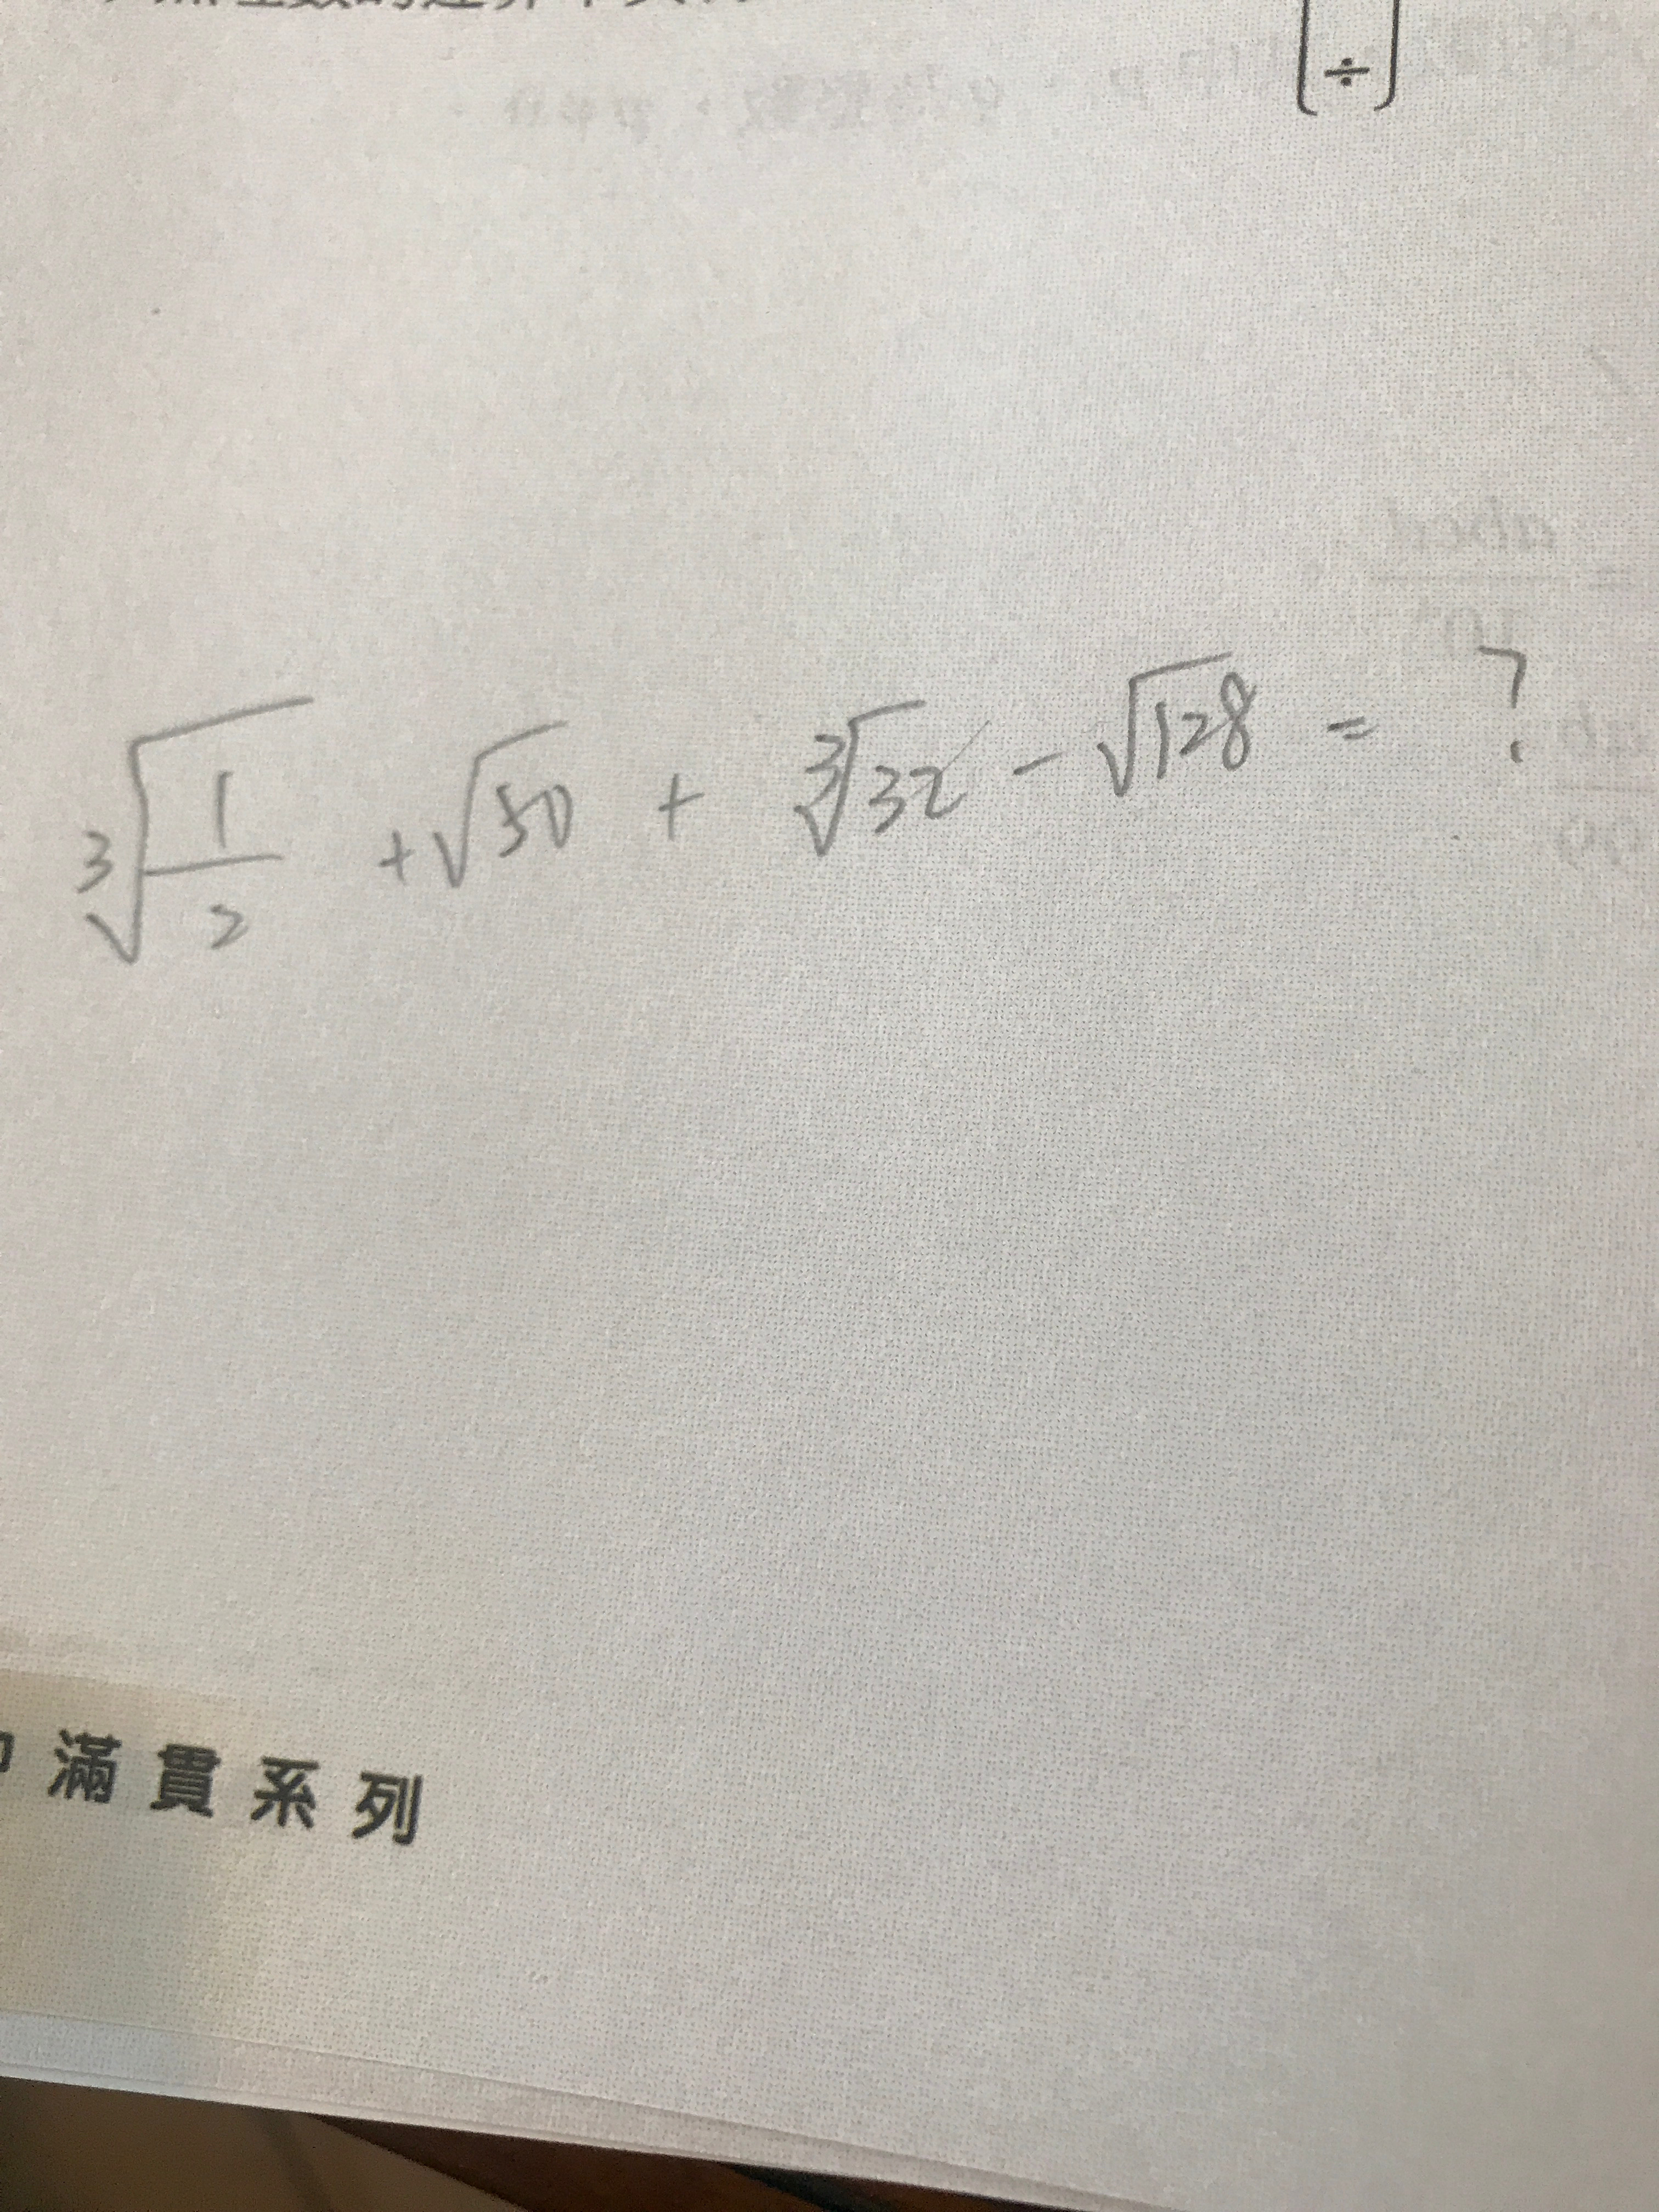 [÷]
∛(1/2) + √50 + ∛32 - √128 = ?
滿貫系列